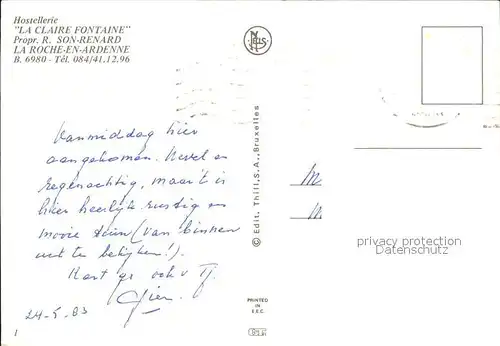 Hostellerie
"LA CLAIRE FONTAINE"
Propr. R. SON-RENARD
LA ROCHE-EN-ARDENNE
B. 6980 - Tél. 084/41.12.96
NELS
Vanmiddag hier
aangekomen. Nevel en
regenachtig, maar 't is
hier heerlijk rustig en
mooie tuin (van binnen
uit te bekijken!).
24-5-83
1
© Edit. Thill, S.A., Bruxelles
PRINTED
IN
E.E.C.
privacy protection
Datenschutz